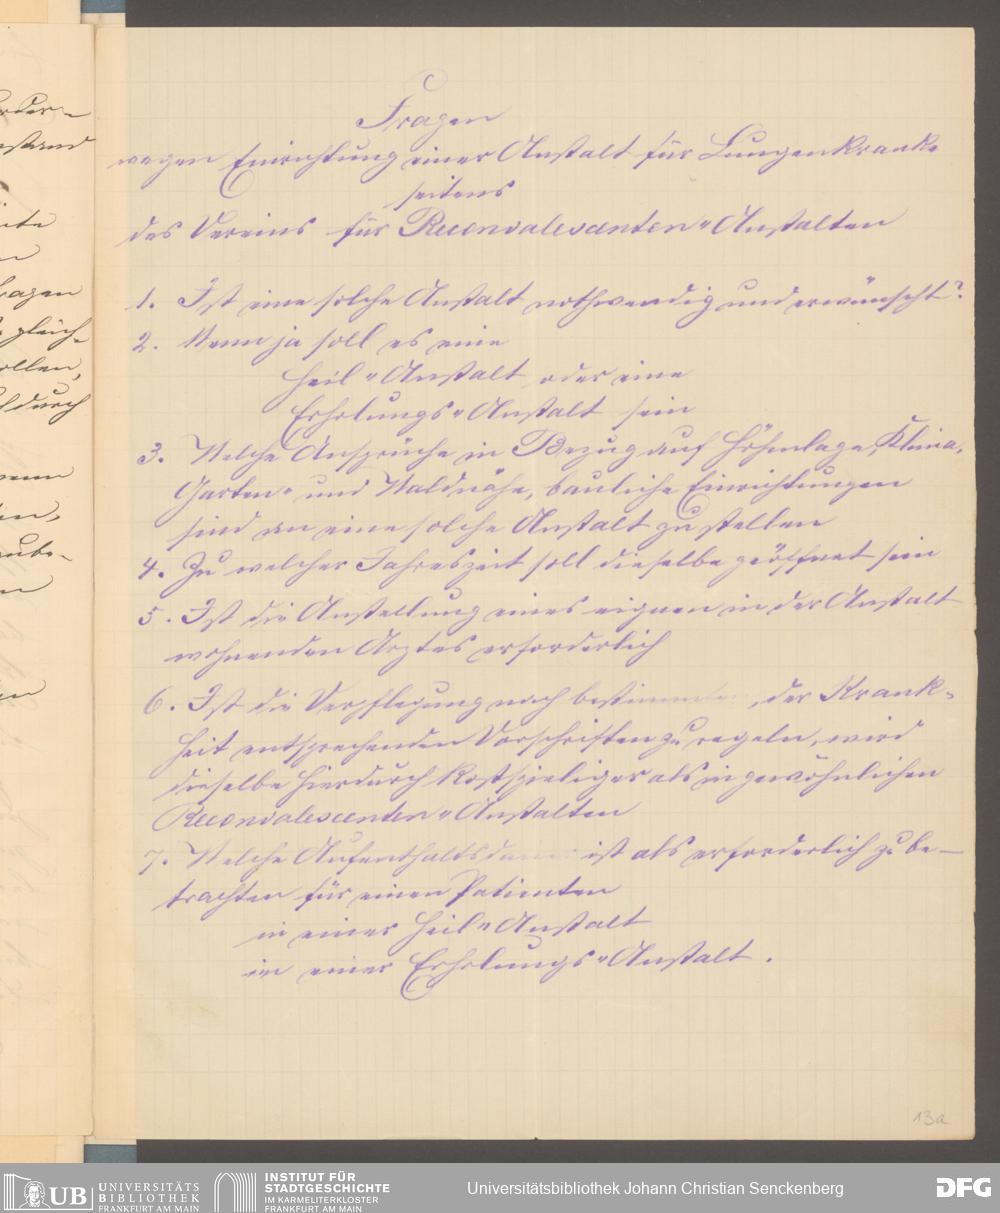 Fragen
wegen Einrichtung einer Anstalt für Lungenkranke
seitens
des Vereins für Reconvalescenten-Anstalten
1. Ist eine solche Anstalt nothwendig und erwünscht?
2. Wenn ja soll es eine
Heil-Anstalt oder eine
Erholungs-Anstalt sein
3. Welche Ansprüche in Bezug auf Höhenlage, Klima,
Garten- und Waldnähe, bauliche Einrichtungen
sind an eine solche Anstalt zu stellen
4. Zu welcher Jahreszeit soll dieselbe geöffnet sein
5. Ist die Anstellung eines eignen in der Anstalt
wohnenden Arztes erforderlich
6. Ist die Verpflegung nach bestimmten, der Krank-
heit entsprechenden Vorschriften zu regeln, wird
dieselbe hierdurch kostspieliger als in gewöhnlichen
Reconvalescenten-Anstalten
7. Welche Aufenthaltsdauer ist als erforderlich zu be-
trachten für einen Patienten
in einer Heil-Anstalt
in einer Erholungs-Anstalt.
13a
UB UNIVERSITÄTS
BIBLIOTHEK
FRANKFURT AM MAIN
INSTITUT FÜR
STADTGESCHICHTE
IM KARMELITERKLOSTER
FRANKFURT AM MAIN
Universitätsbibliothek Johann Christian Senckenberg
DFG